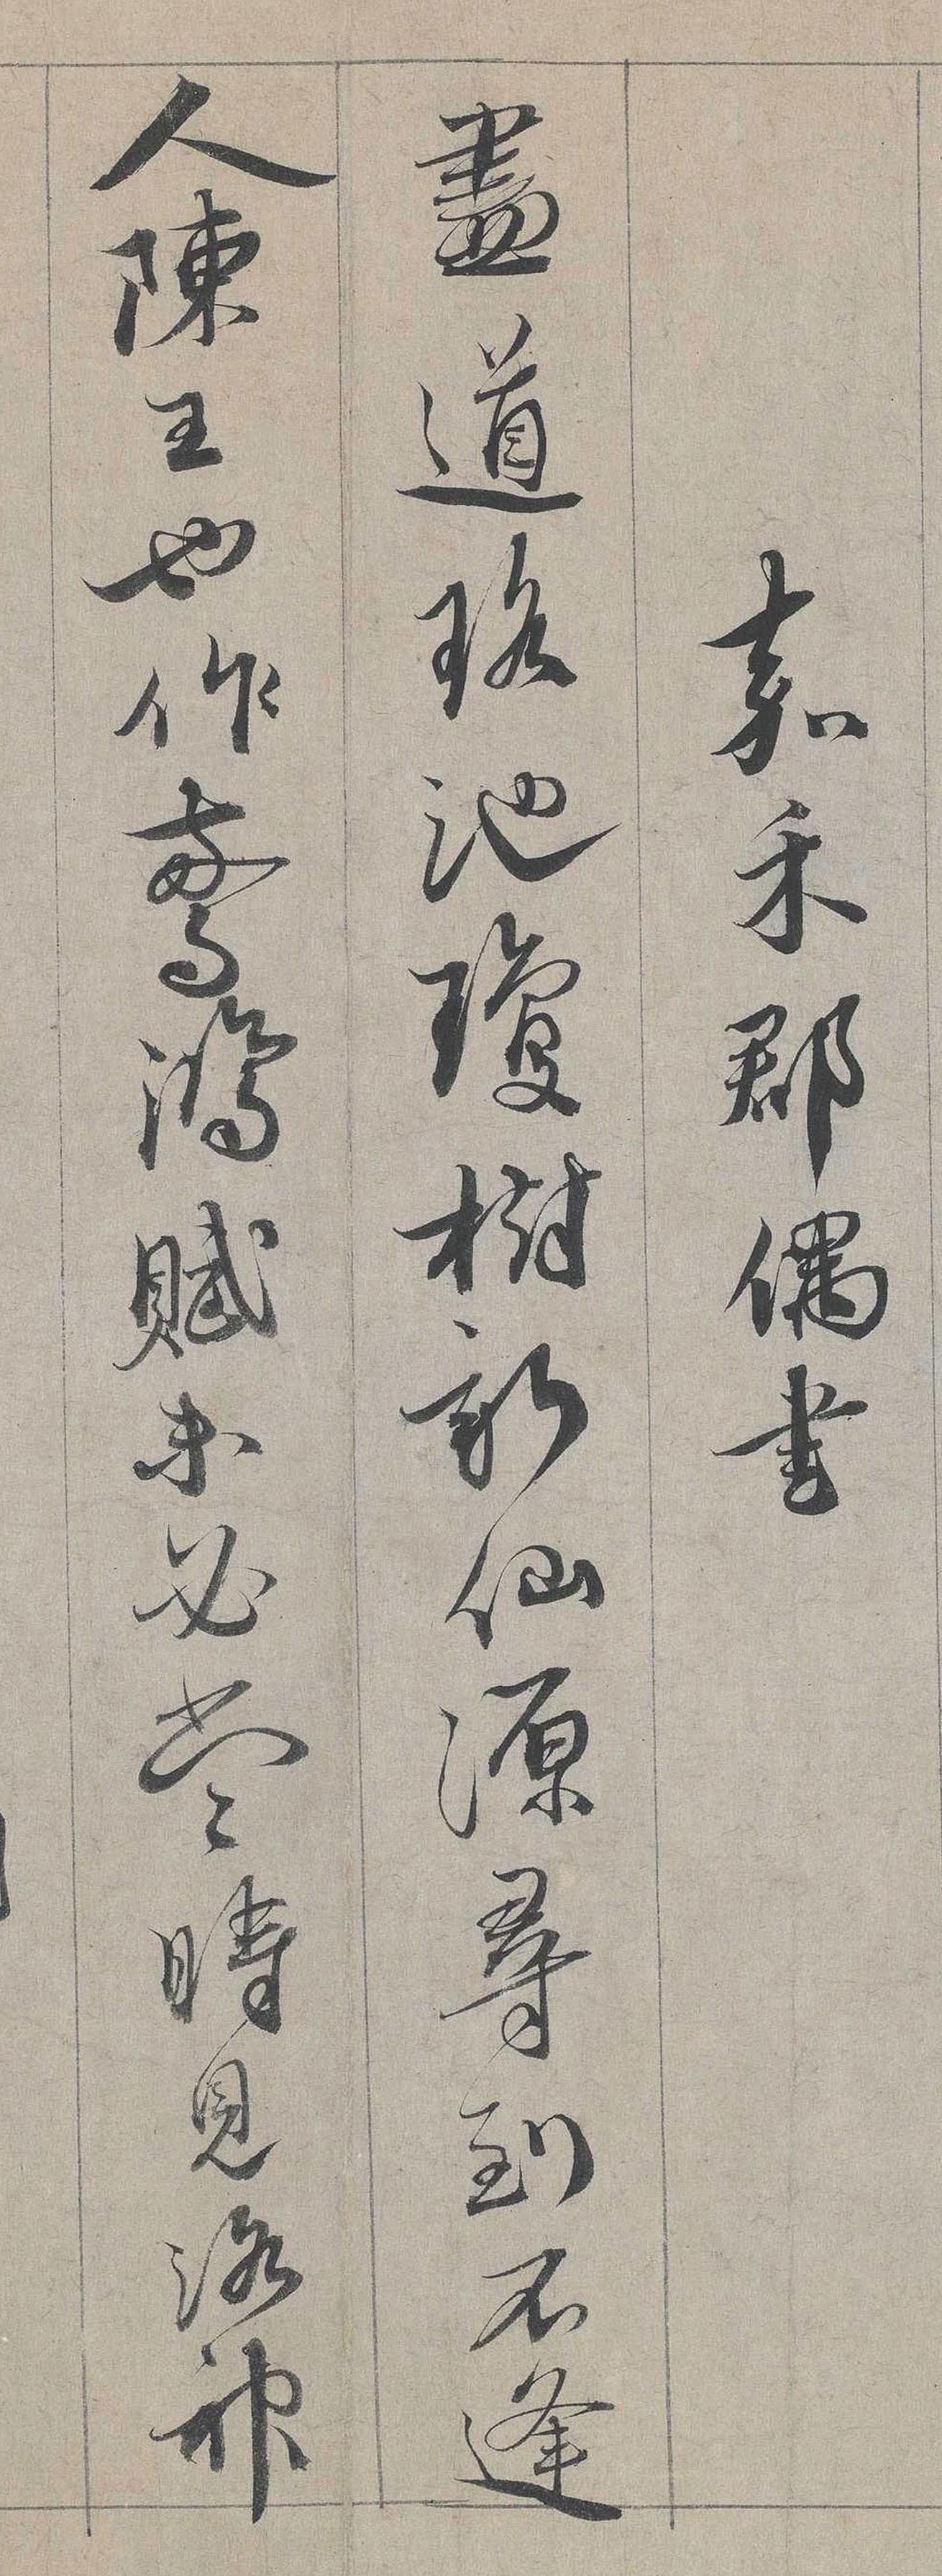 嘉禾郡偶書
盡道瑤池瓊樹新仙源尋到不逢
人陳王也作驚鴻賦未必當時見洛神